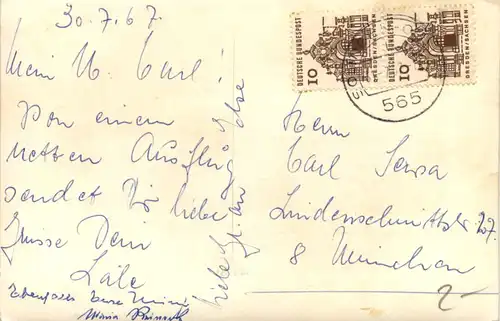 30.7.67.
Mein lb. Carl!
Von einem
netten Ausflug
sendet Dir liebe
Grüsse Dein
Lale
Ebenfalls Eure Mimi
Maria
liebe Gr. an Ilse
DEUTSCHE BUNDESPOST
10
DRESDEN/SACHSEN
DEUTSCHE BUNDESPOST
10
DRESDEN/SACHSEN
565
Herrn
Carl
Lindenschmittstr. 27
8 München
2-